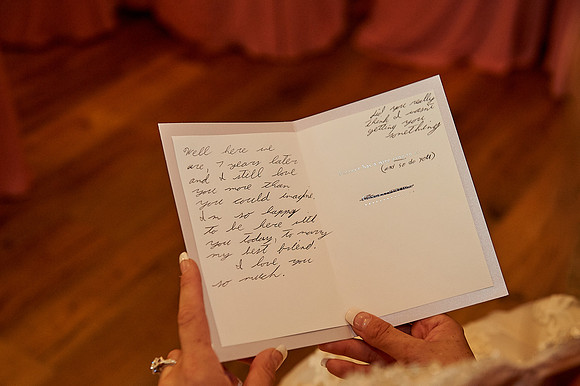 Well here we
are, 7 years later
and I still love
you more than
you could imagine.
I'm so happy
to be here with
you today, to marry
my best friend.
I love you
so much.
Did you really
think I wasn't
getting you
something
(and so do you)